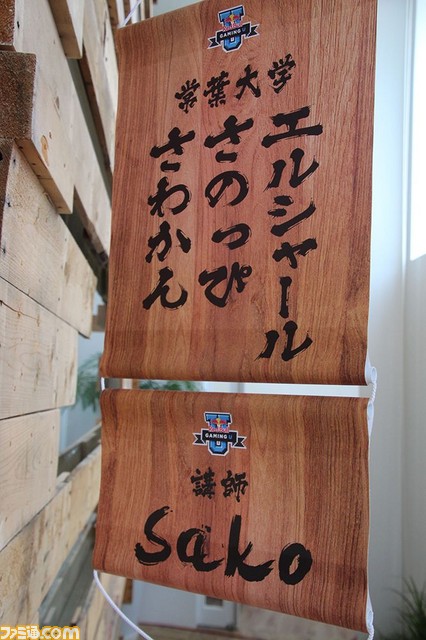 GAMING U
常葉大学
エルシャール
さのっぴ
さわかん
GAMING U
講師
Sako
ファミ通.com